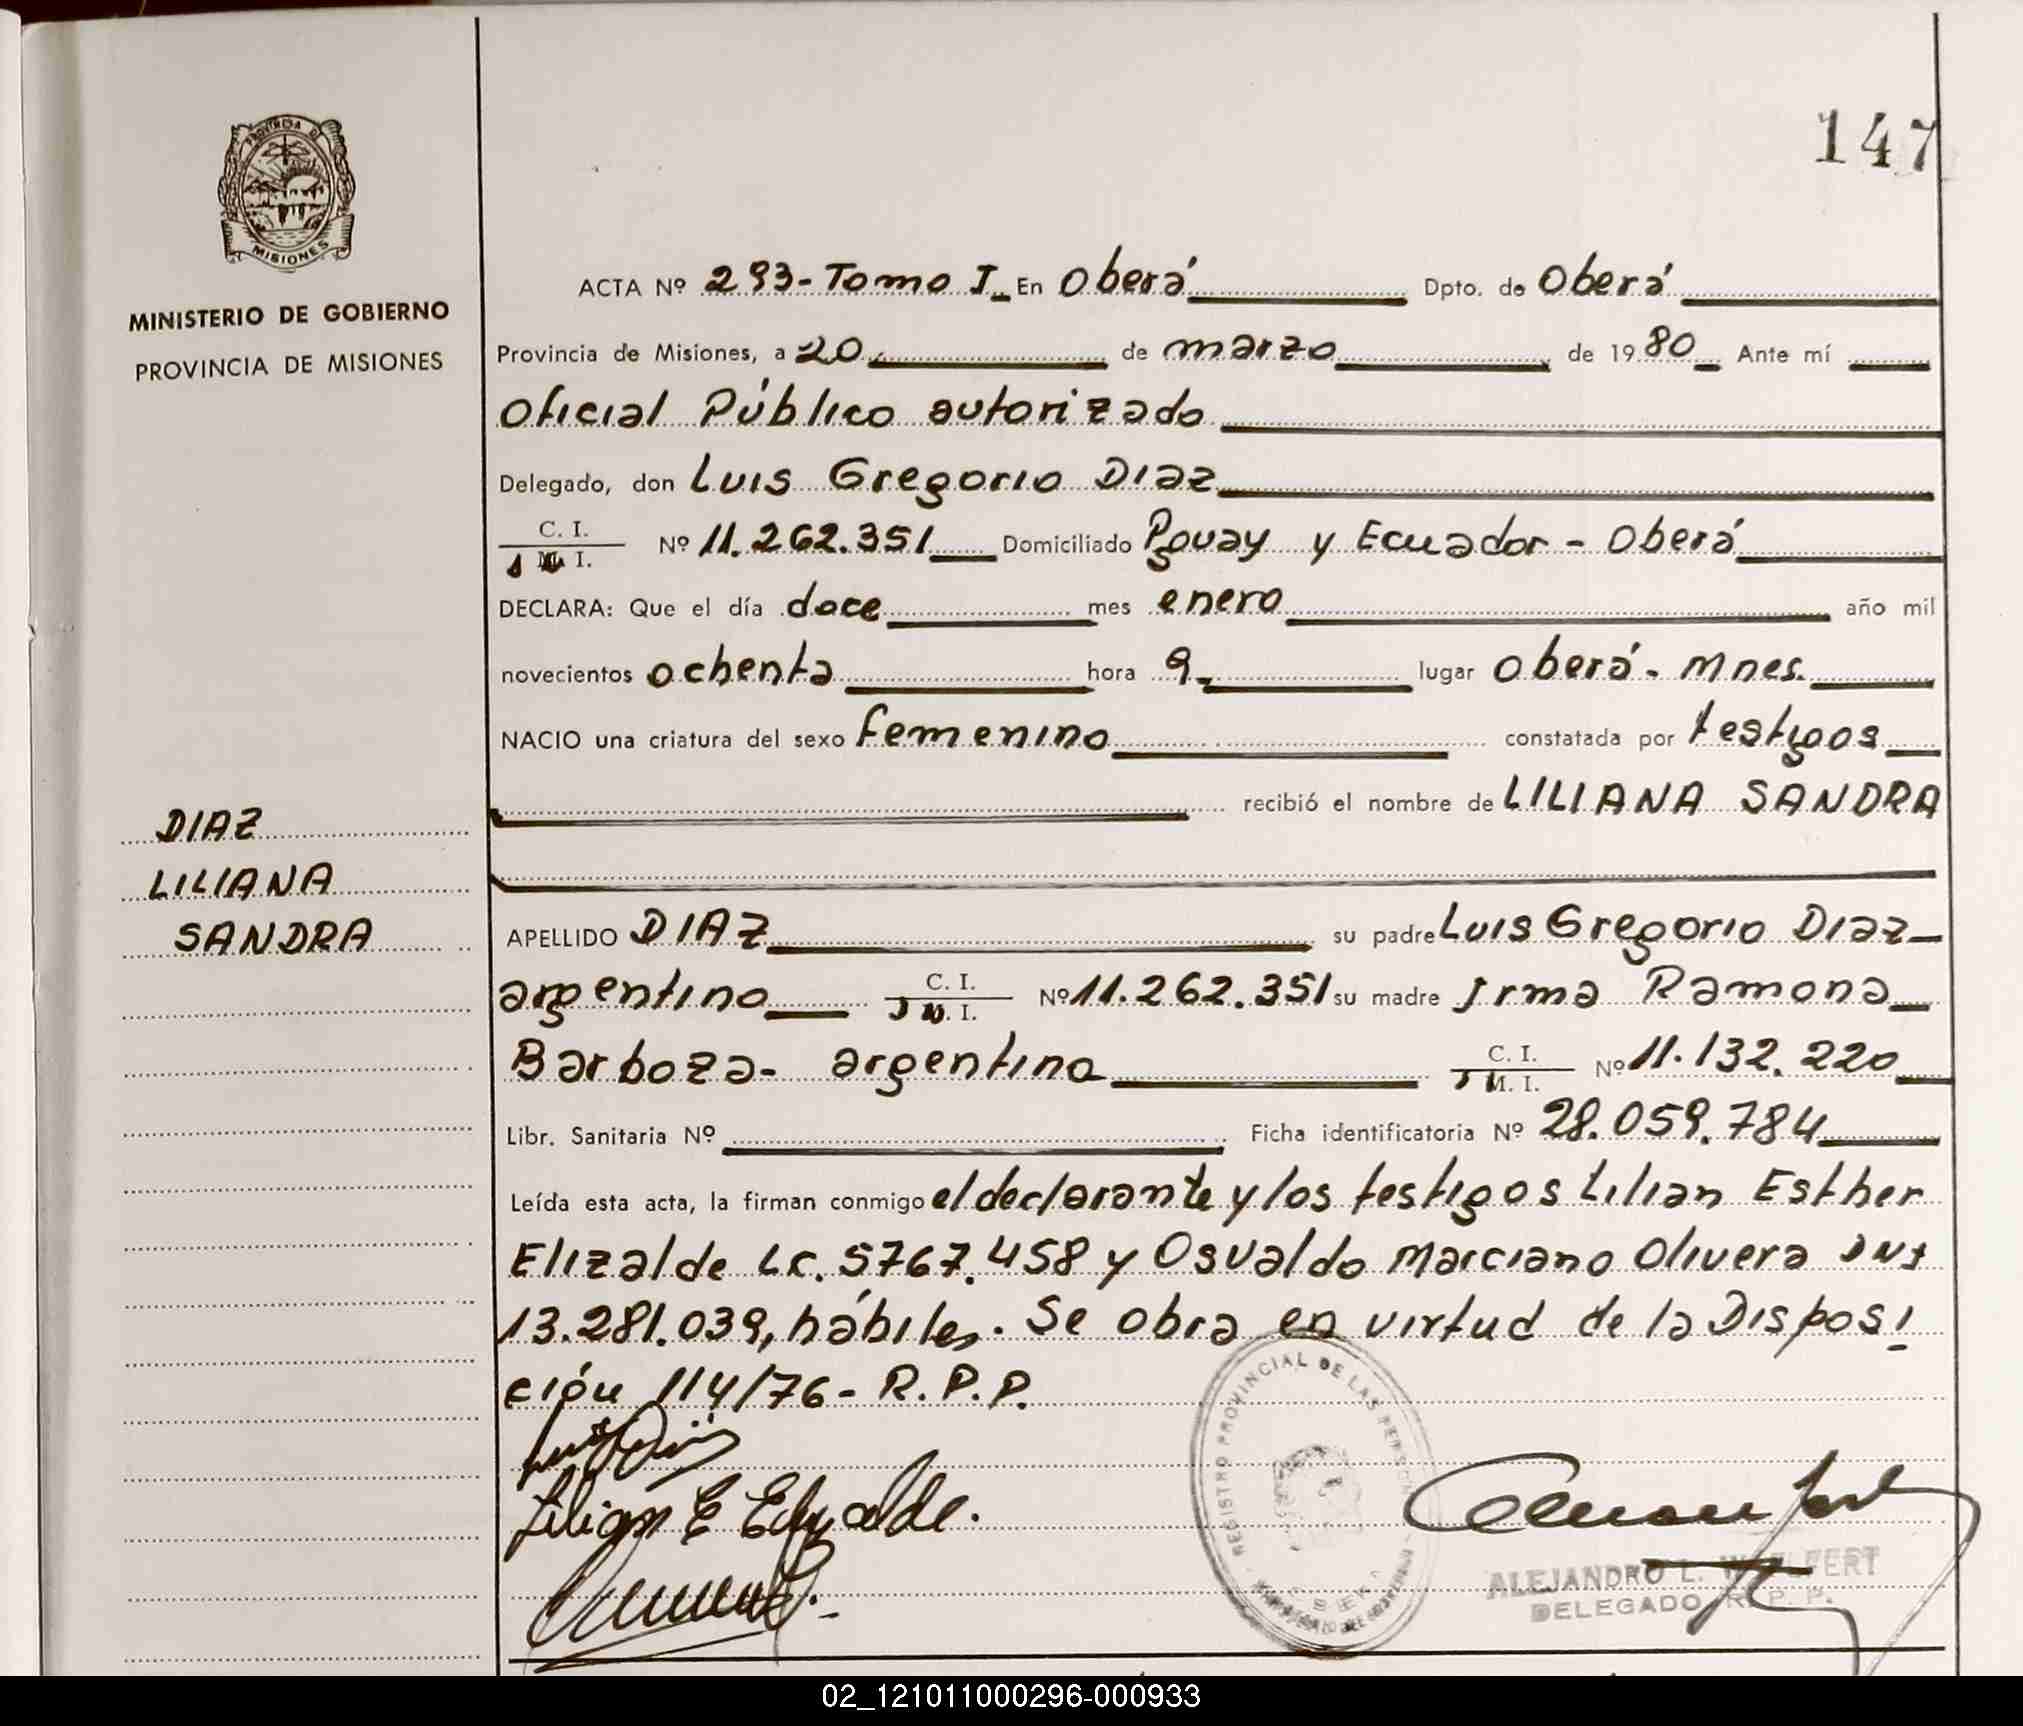 147
PROVINCIA DE
MISIONES
MINISTERIO DE GOBIERNO
PROVINCIA DE MISIONES
DIAZ
LILIANA
SANDRA
ACTA Nº 293-Tomo I_ En Oberá Dpto. de Oberá
Provincia de Misiones, a 20 de marzo de 1980 Ante mí
Oficial Público autorizado
Delegado, don Luis Gregorio Diaz
C. I.
I. Nº 11.262.351 Domiciliado y Ecuador - Oberá
DECLARA: Que el día doce mes enero año mil
novecientos ochenta hora 9 lugar Oberá - Mnes.
NACIO una criatura del sexo femenino constatada por testigos
recibió el nombre de LILIANA SANDRA
APELLIDO DIAZ su padre Luis Gregorio Diaz
argentino C. I. Nº 11.262.351 su madre Irma Ramona
Barboza - argentina C. I. Nº 11.132.220
Libr. Sanitaria Nº Ficha identificatoria Nº 28.059.784
Leída esta acta, la firman conmigo el declarante y los testigos Lilian Esther
Elizalde LC. 5767.458 y Osvaldo Marciano Olivera DNI
13.281.039, hábiles. Se obra en virtud de la Disposi
ción 114/76 - R.P.P.
Luis Diaz
Lilian E Elizalde.
REGISTRO PROVINCIAL DE LAS PERSONAS
ALEJANDRO L.
DELEGADO R. P. P.
02_121011000296-000933